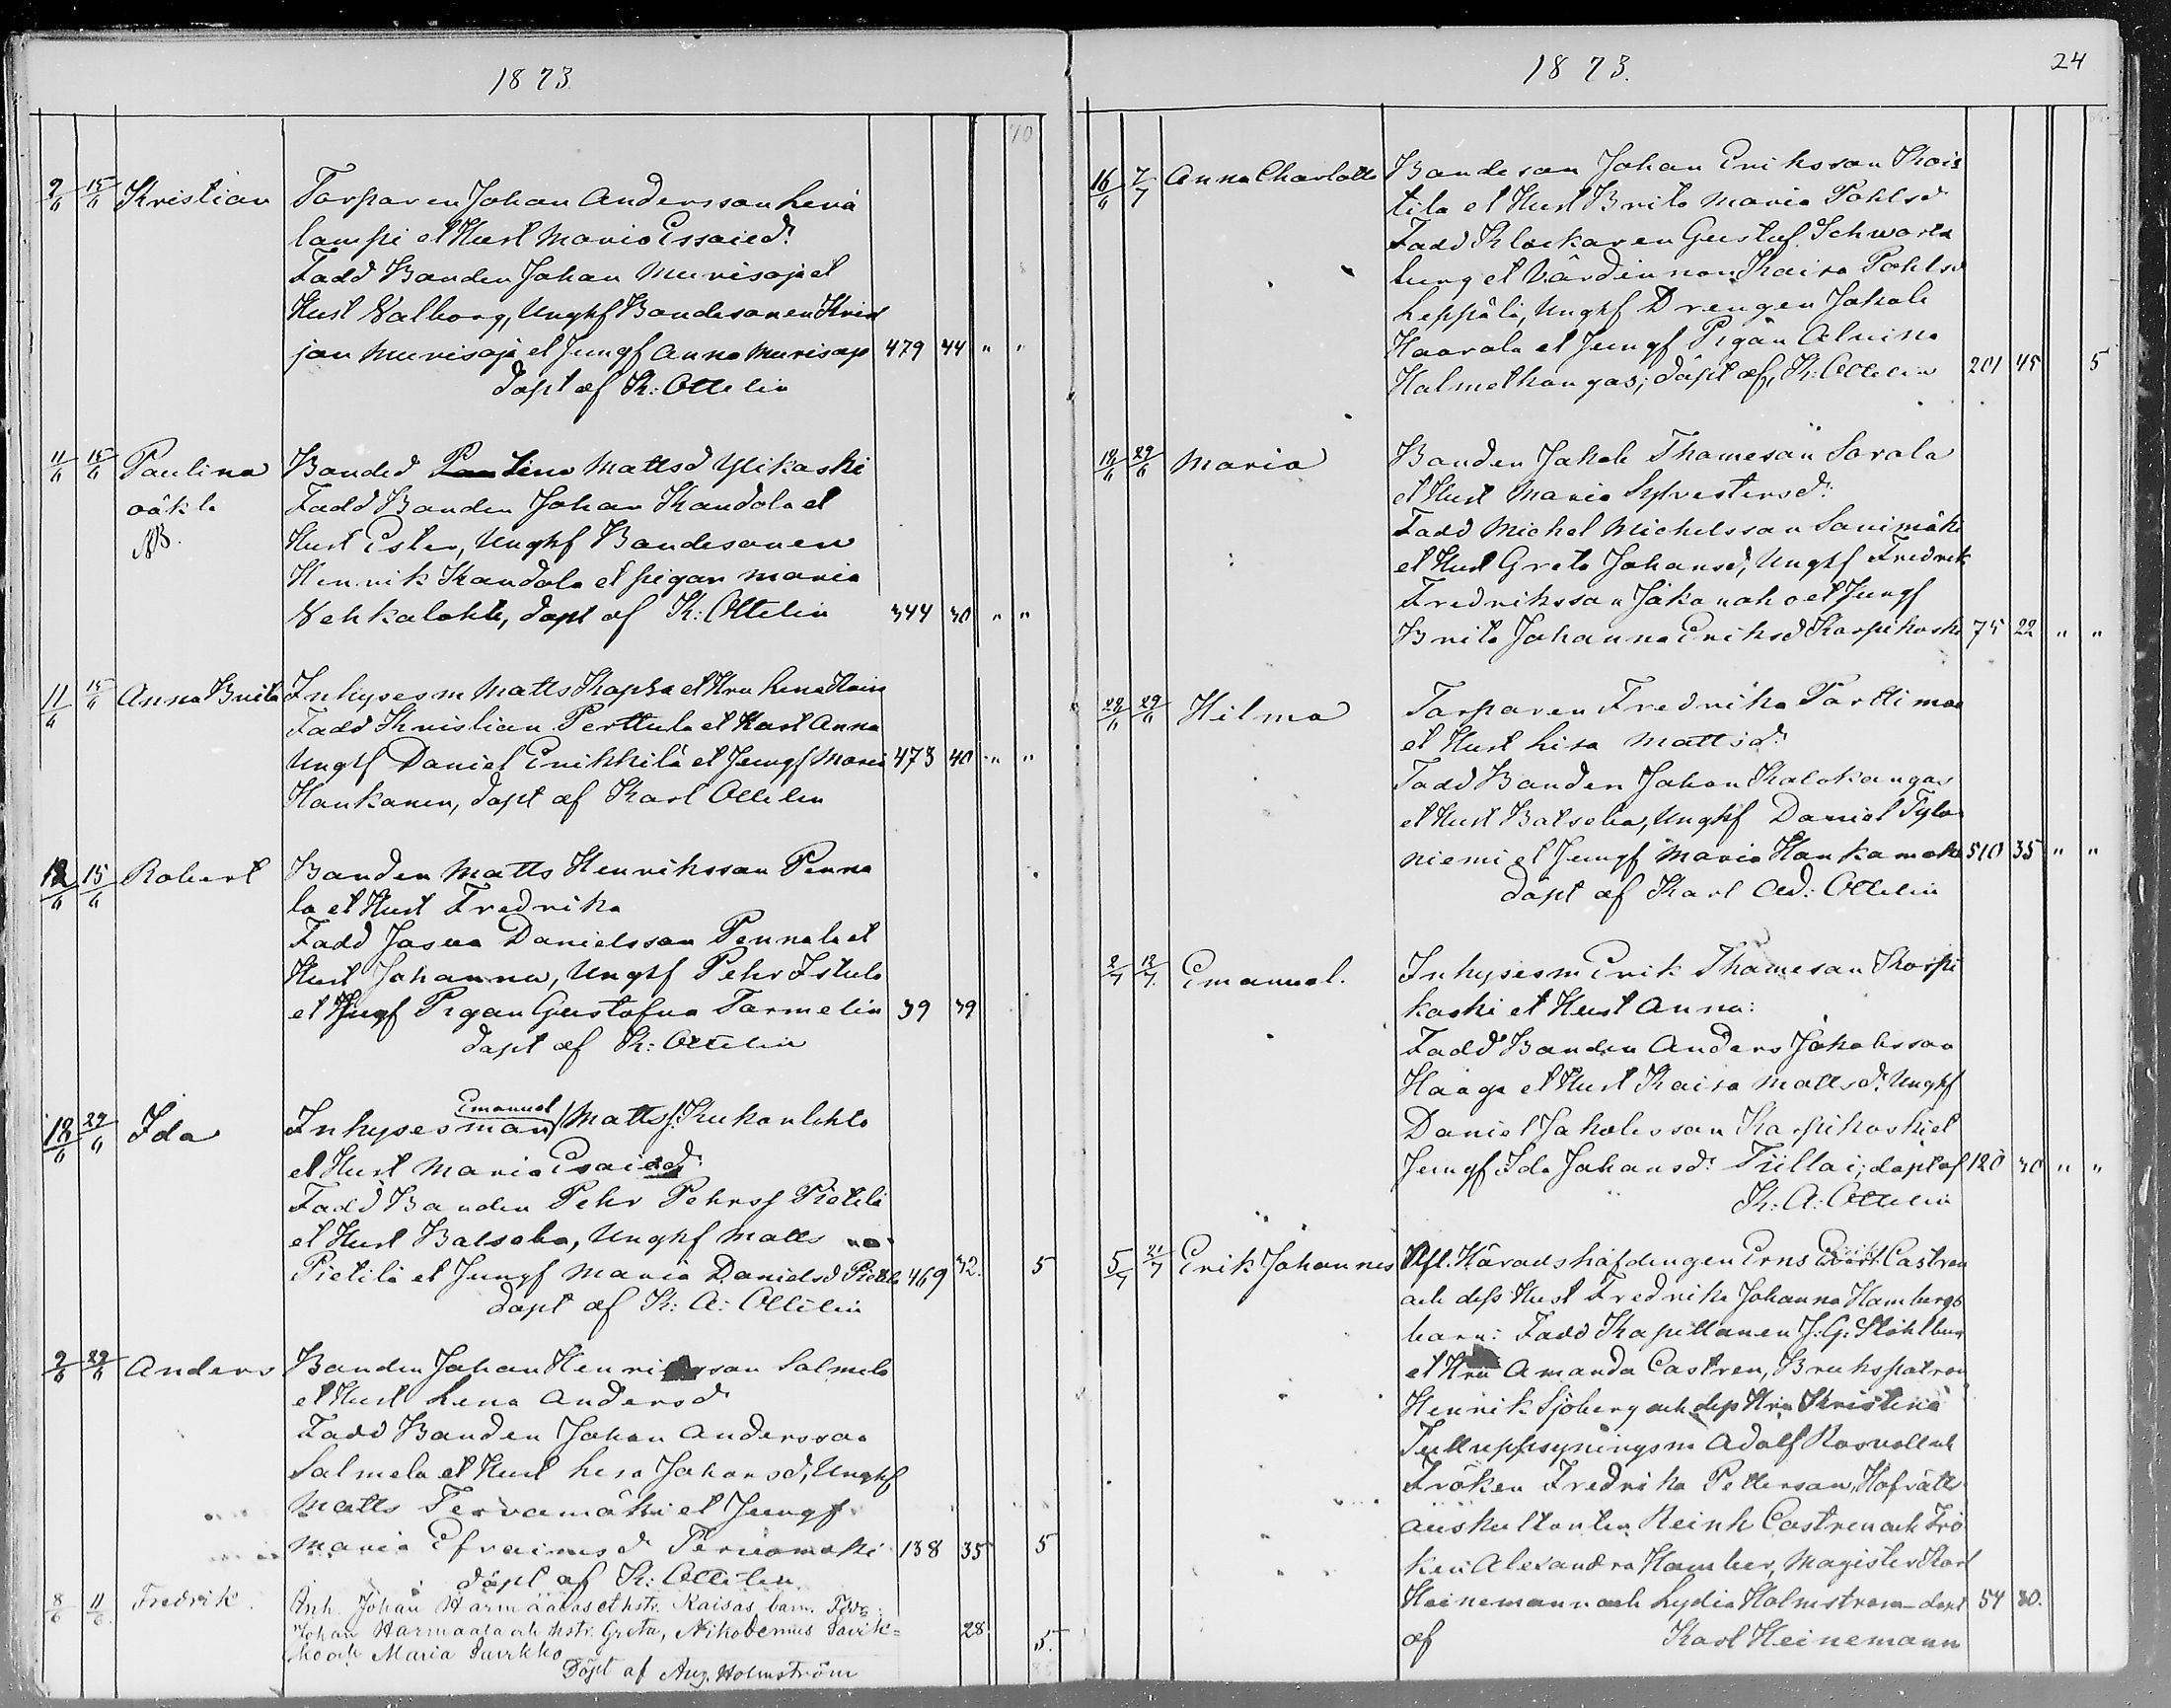 1873
9/6 15/6 Kristian Torparen Johan Andersson Lenä
lampi et Hust Maria Essaied:
Fadd Bonden Johan Murisoja et
Hust Valborg, Unghf Bondesonen Krist
jan Murisoja et Jungf Anna Murisoja 479 44 " "
döpt af K: Ottelin
11/6 15/6 Paulina Bonded Lina Mattsd Ylikoski
oäkta Fadd Bonden Johan Kandola et
NB. Hust Ester, Unghf Bondesonen
Henrik Kandola et pigan Maria
Vehkalahti, döpt af K: Ottelin 344 30 " "
11/6 15/6 Anna Brita Inhysesm Matts Kapsa et Hru Lena Kaisa
Fadd Kristian Perttula et Hust Anna
Unghf Daniel Erikkilä et Jungf Maria 473 40 " "
Hankanen, döpt af Karl Ottelin
12/6 15/6 Robert Bonden Matts Henriksson Penna
la et Hust Fredrika
Fadd Josua Danielsson Pennala et
Hust Johanna, Unghf Pehr Istula
et Jungf Pigan Gustafva Tormelin 39 39
döpt af K: Ottelin
18/6 29/6 Ida Inhysesman Emanuel Mattsf. Kukonlehto
et Hust Maria Esaied:
Fadd Bonden Pehr Pehrsf Pietilä
et Hust Batseba, Unghf Matts
Pietilä et Jungf Maria Danielsd Pietilä 469 32. 5
döpt af K: A: Ottelin
9/6 29/6 Anders Bonden Johan Henriksson Salmela
et Hust Lena Andersd
Fadd Bonden Johan Andersson
Salmela et Hust Lisa Johansd, Unghf
Matts Tervamäki et Jungf
Maria Efraimsd Tervamäki 138 35 5
döpt af K: Ottelin
8/6 11/6 Fredrik. Inh. Johan Harmaalas et hstr. Kaisas barn. Fdr:
Johan Harmaala och hstr. Greta, Nikodemus Juvik= 28.
ko och Maria Juvikko 5.
Döpt af Aug. Holmström
1873. 24
16/6 7/7 Anna Charlotta Bondeson Johan Eriksson Kois
tila et Hust Brita Maria Pahlsd
Fadd Klockaren Gustaf Schwartz
berg et Värdinnan Kaisa Pahlsd
Leppälä, Unghf Drengen Jakob
Haarala et Jungf Pigan Alvina
Halmetkangas; döpt af, K: Ottelin 201 45 5
18/6 29/6 Maria Bonden Jakob Thomeson Sarala
et Hust Maria Sylvestersd:
Fadd Michel Michelsson Savimäki
et Hust Greta Johansd; Unghf Fredrik
Fredriksson Jäkönaho et Jungf
Brita Johanna Eriksd Korpikoski 75 22 " "
28/6 29/6 Hilma Torparen Fredrik Porttimaa
et Hust Lisa Mattsd:
Fadd Bonden Johan Kalakangas
et Hust Batseba, Unghf Daniel
niemi et Jungf Maria Hankamaki 510 35 " "
döpt af Karl Ad: Ottelin
2/7 12/7 Emanuel. Inhysesm Erik Thomeson Korpi
koski et Hust Anna:
Fadd Bonden Anders Jakobsson
Haaga et Hust Kaisa Mattsd: Unghf
Daniel Jakobsson Korpikoski et
Jungf Ida Johansd: Tiillai; döpt af 120 30 " "
K: A: Ottelin
5/7 21/7 Erik Johannes Vfl. Häradshöfdingen Erns Castren
och dess Hust Fredrika Johanna Hambergs
barn: Fadd Kapellanen J. G. Ståhlberg
et Hru Amanda Castren, Brukspatron
Henrik Sjöberg och dess Hru Kristina
Tulluppsyningsm Adolf Rosvall och
Fröken Fredrika Petterson, Hofrätts
auskultanten Reinh Castren och Frö
ken Alexandra Hamber, Magister Karl
Heinemann och Lydia Holmstrom - döpt 54 30.
af Karl Heinemann